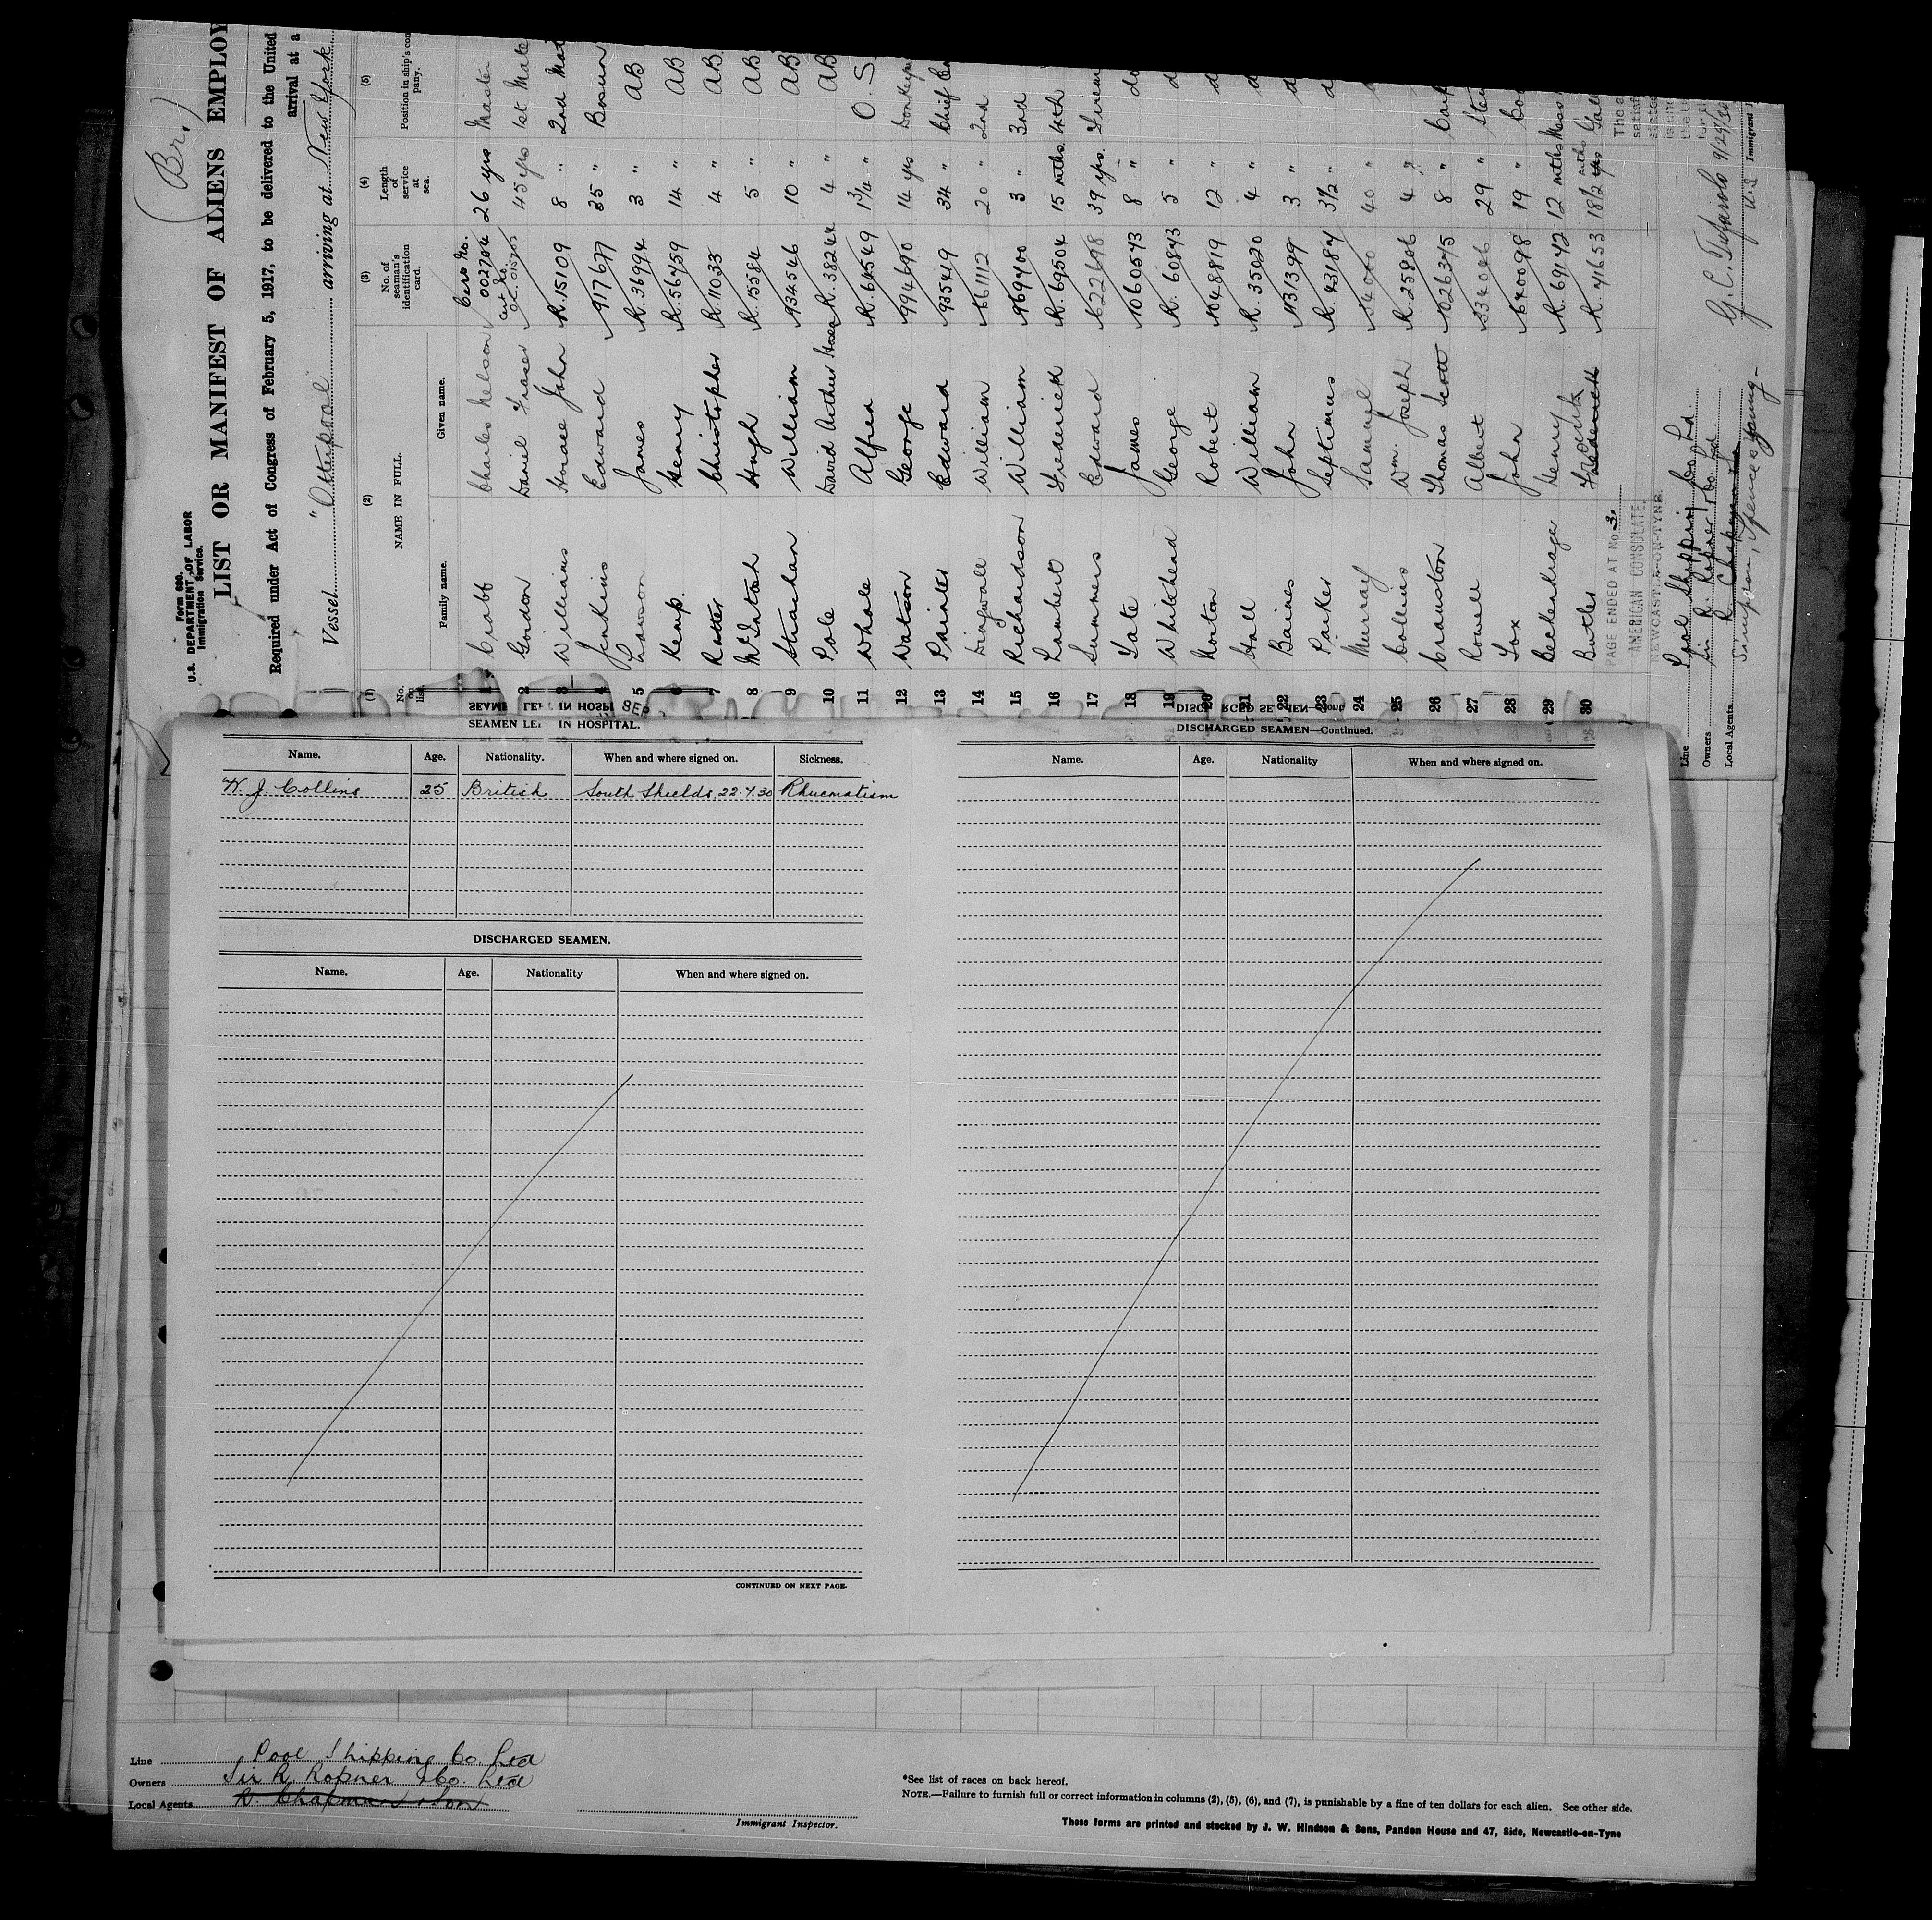 (Br.)
Form 680.
U.S. DEPARTMENT OF LABOR
Immigration Service.
LIST OR MANIFEST OF ALIENS EMPLOY
Required under Act of Congress of February 5, 1917, to be delivered to the United
arrival at a
Vessel "Otterpool" arriving at New York
(1) (2) (3) (4) (5)
No. on list. NAME IN FULL. No. of seaman's identification card. Length of service at sea. Position in ship's com pany.
Family name. Given name.
1 Crabb Charles Nelson Cert No. 002704 26 yrs Master
2 Gordon Daniel Fraser Cert No. 45 yrs 1st Mate
3 Williams Horace John R.15109 8 " 2nd Mat
4 Jenkins Edward 917677 35 " Bosun
5 Lawson James R.36994 3 " AB
6 Kemp Henry R.56459 14 " AB
7 Rutter Christopher R.11033 4 " AB
8 McIntosh Hugh R.15584 5 " AB
9 Strachan William 934546 10 " AB
10 Pole David Arthur R.38244 4 " AB
11 Whale Alfred R.64549 1 3/4 " O.S
12 Watson George 994690 14 yrs Donkeym
13 Painter Edward 935419 34 " Chief
14 Dingwall William 661112 20 " 2nd
15 Richardson William 969400 3 " 3rd
16 Lambert Frederick R.69504 15 mths. 4th
17 Summers Edward 622698 39 yrs. Firem
18 Tate James 1060543 8 " do
19 Whitehead George R. 60843 5 " d
20 Norton Robert 1048819 12 " d
21 Hall William R. 35020 4 " d
22 Baines John 1131397 3 " d
23 Parker Septimus R. 43184 3 1/2 " d
24 Murray Samuel 54000 40 "
25 Collins Wm. Joseph R. 25806 4 "
26 Cranston Thomas Scott 1026345 8 " Carp
27 Rowell Albert 334046 29 " Stew
28 Fox John 640098 19 " Coo
29 Beckendrage Henry R. 69142 12 mths Mess
30 Butler Frederick R. 41653 18 1/2 mths yrs Gall
PAGE ENDED AT No. 30
AMERICAN CONSULATE,
NEWCASTLE-ON-TYNE.
Line Pool Shipping Co Ld.
Owners Sir R. Ropner & Co. Ltd
Local Agents R. Chapman &
Simpson, Spence & Young
9/25/30
Immigrant
SEAMEN LEFT IN HOSPITAL.
Name. Age. Nationality. When and where signed on. Sickness.
W. J. Collins 25 British South Shields, 22.7.30 Rhuematism
DISCHARGED SEAMEN.
Name. Age. Nationality When and where signed on.
CONTINUED ON NEXT PAGE.
DISCHARGED SEAMEN—Continued.
Name. Age. Nationality When and where signed on.
Line Pool Shipping Co. Ltd
Owners Sir R. Ropner & Co. Ltd
Local Agents R. Chapman & Son
Immigrant Inspector.
*See list of races on back hereof.
NOTE.—Failure to furnish full or correct information in columns (2), (5), (6), and (7), is punishable by a fine of ten dollars for each alien. See other side.
These forms are printed and stocked by J. W. Hindson & Sons, Pandon House and 47, Side, Newcastle-on-Tyne